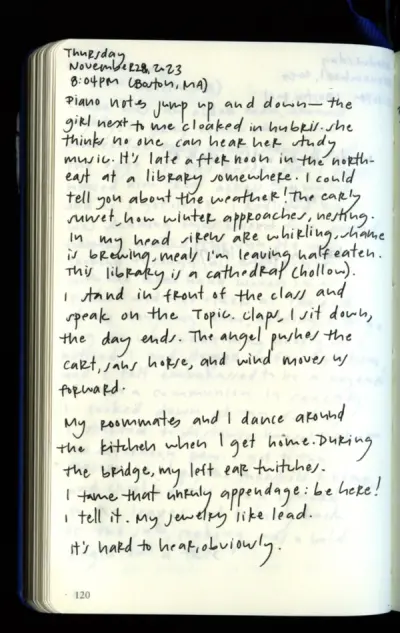 Thursday
November 28, 2023
8:04PM (Boston, MA)
Piano notes jump up and down — the
girl next to me cloaked in hubris. she
thinks no one can hear her study
music. It's late afternoon in the north-
east at a library somewhere. I could
tell you about the weather! The early
sunset, how winter approaches, nesting.
In my head sirens are whirling, shame
is brewing, meals I'm leaving half eaten.
This library is a cathedral (hollow).
I stand in front of the class and
speak on the Topic. claps, I sit down,
the day ends. The angel pushes the
cart, sans horse, and wind moves us
forward.
My roommates and I dance around
the kitchen when I get home. During
the bridge, my left ear twitches.
I tame that unruly appendage: be here!
I tell it. My jewelry like lead.
It's hard to hear, obviously.
120